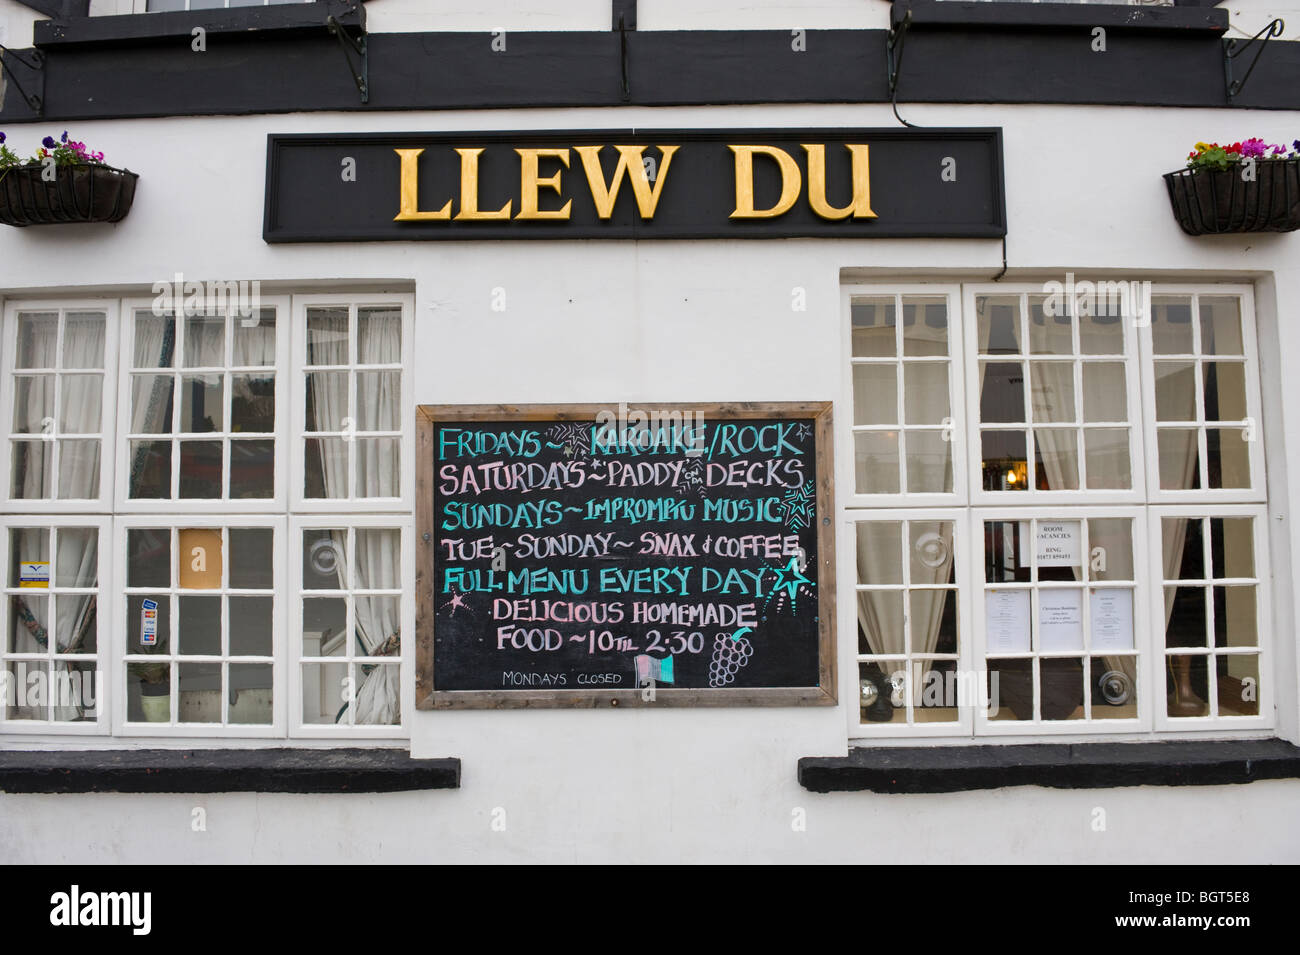 LLEW DU
FRIDAYS ~ KAROAKE/ROCK
SATURDAYS ~ PADDY ON DA DECKS
SUNDAYS ~ IMPROMPTU MUSIC
TUE ~ SUNDAY ~ SNAX & COFFEE
FULL MENU EVERY DAY
DELICIOUS HOMEMADE
FOOD ~ 10 TIL 2:30
MONDAYS CLOSED
ROOM
VACANCIES
RING
01873 859453
alamy
Image ID: BGT5E8
www.alamy.com